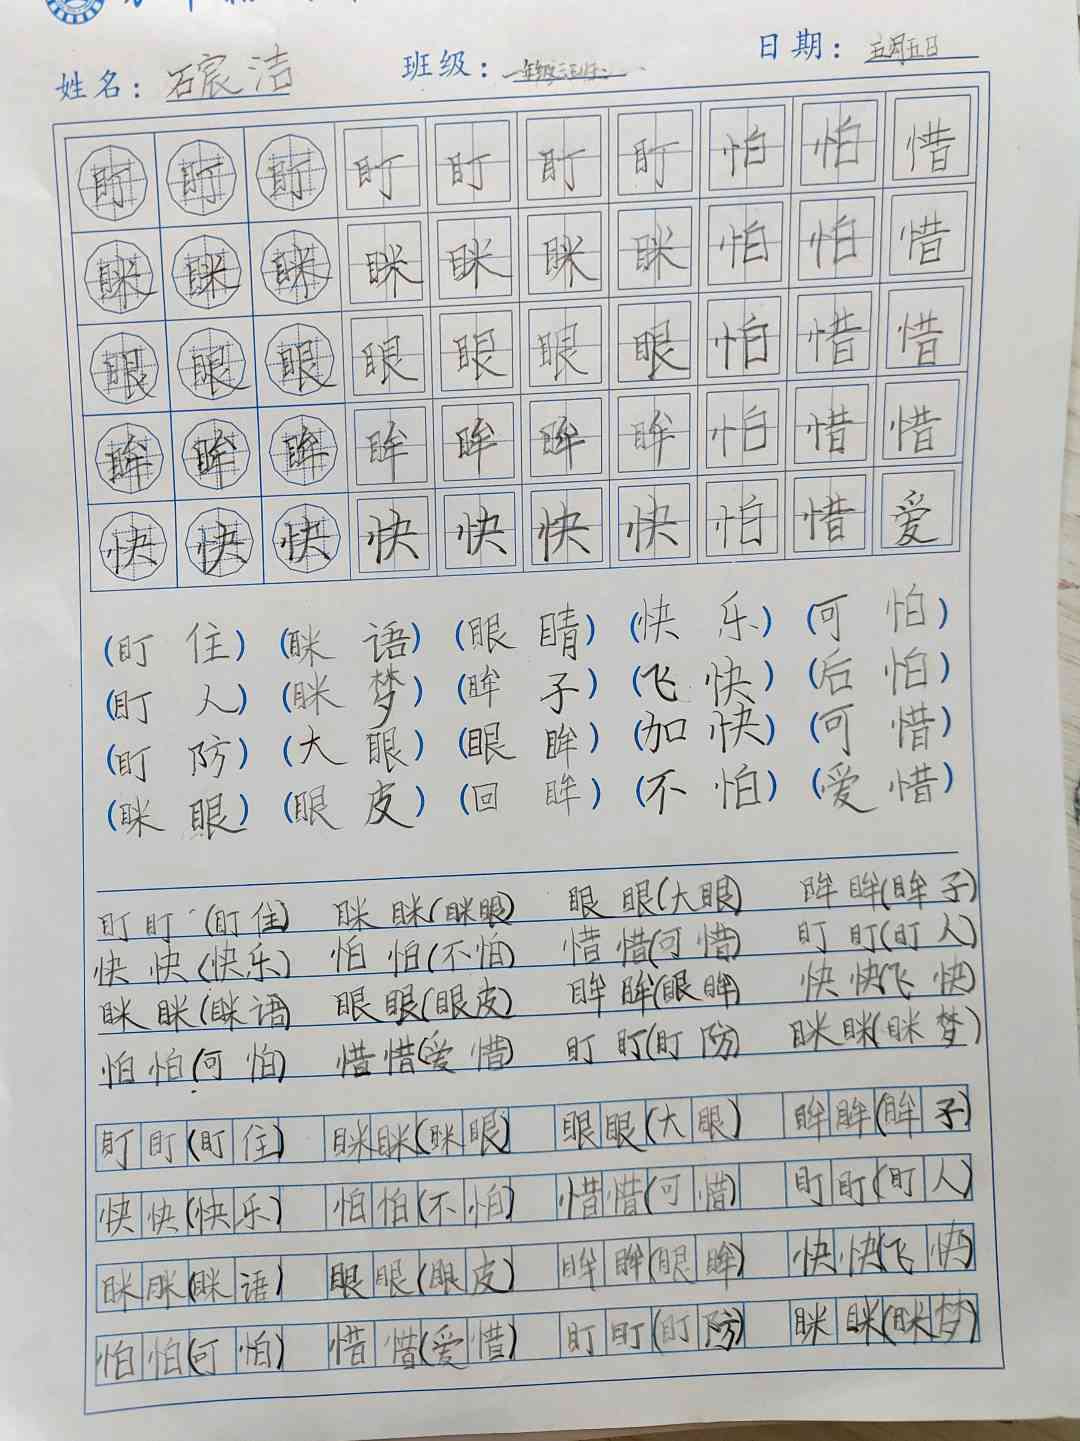 姓名：石宸洁 班级：一年级三班 日期：五月五日
盯 盯 盯 盯 盯 盯 盯 怕 怕 惜
眯 眯 眯 眯 眯 眯 眯 怕 怕 惜
眼 眼 眼 眼 眼 眼 眼 怕 惜 惜
眸 眸 眸 眸 眸 眸 眸 怕 惜 惜
快 快 快 快 快 快 快 怕 惜 爱
(盯住) (眯语) (眼睛) (快乐) (可怕)
(盯人) (眯梦) (眸子) (飞快) (后怕)
(盯防) (大眼) (眼眸) (加快) (可惜)
(眯眼) (眼皮) (回眸) (不怕) (爱惜)
盯盯(盯住) 眯眯(眯眼) 眼眼(大眼) 眸眸(眸子)
快快(快乐) 怕怕(不怕) 惜惜(可惜) 盯盯(盯人)
眯眯(眯语) 眼眼(眼皮) 眸眸(眼眸) 快快(飞快)
怕怕(可怕) 惜惜(爱惜) 盯盯(盯防) 眯眯(眯梦)
盯盯(盯住) 眯眯(眯眼) 眼眼(大眼) 眸眸(眸子)
快快(快乐) 怕怕(不怕) 惜惜(可惜) 盯盯(盯人)
眯眯(眯语) 眼眼(眼皮) 眸眸(眼眸) 快快(飞快)
怕怕(可怕) 惜惜(爱惜) 盯盯(盯防) 眯眯(眯梦)